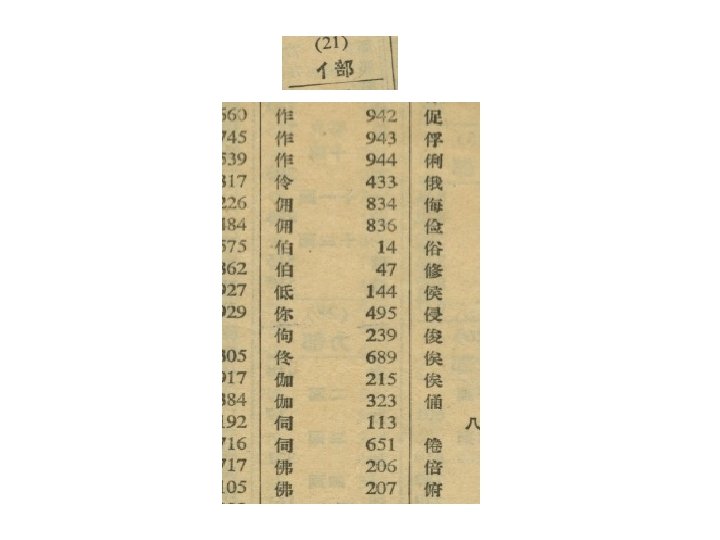 (21)
亻部
560 作 942 促
745 作 943 俘
539 作 944 俐
317 伶 433 俄
226 佣 834 侮
484 佣 836 俭
575 伯 14 俗
362 伯 47 修
927 低 144 侯
929 你 495 侵
佝 239 俊
305 佟 689 俟
917 伽 215 俟
384 伽 323 俑
192 伺 113 八
716 伺 651 倦
717 佛 206 倍
105 佛 207 俯